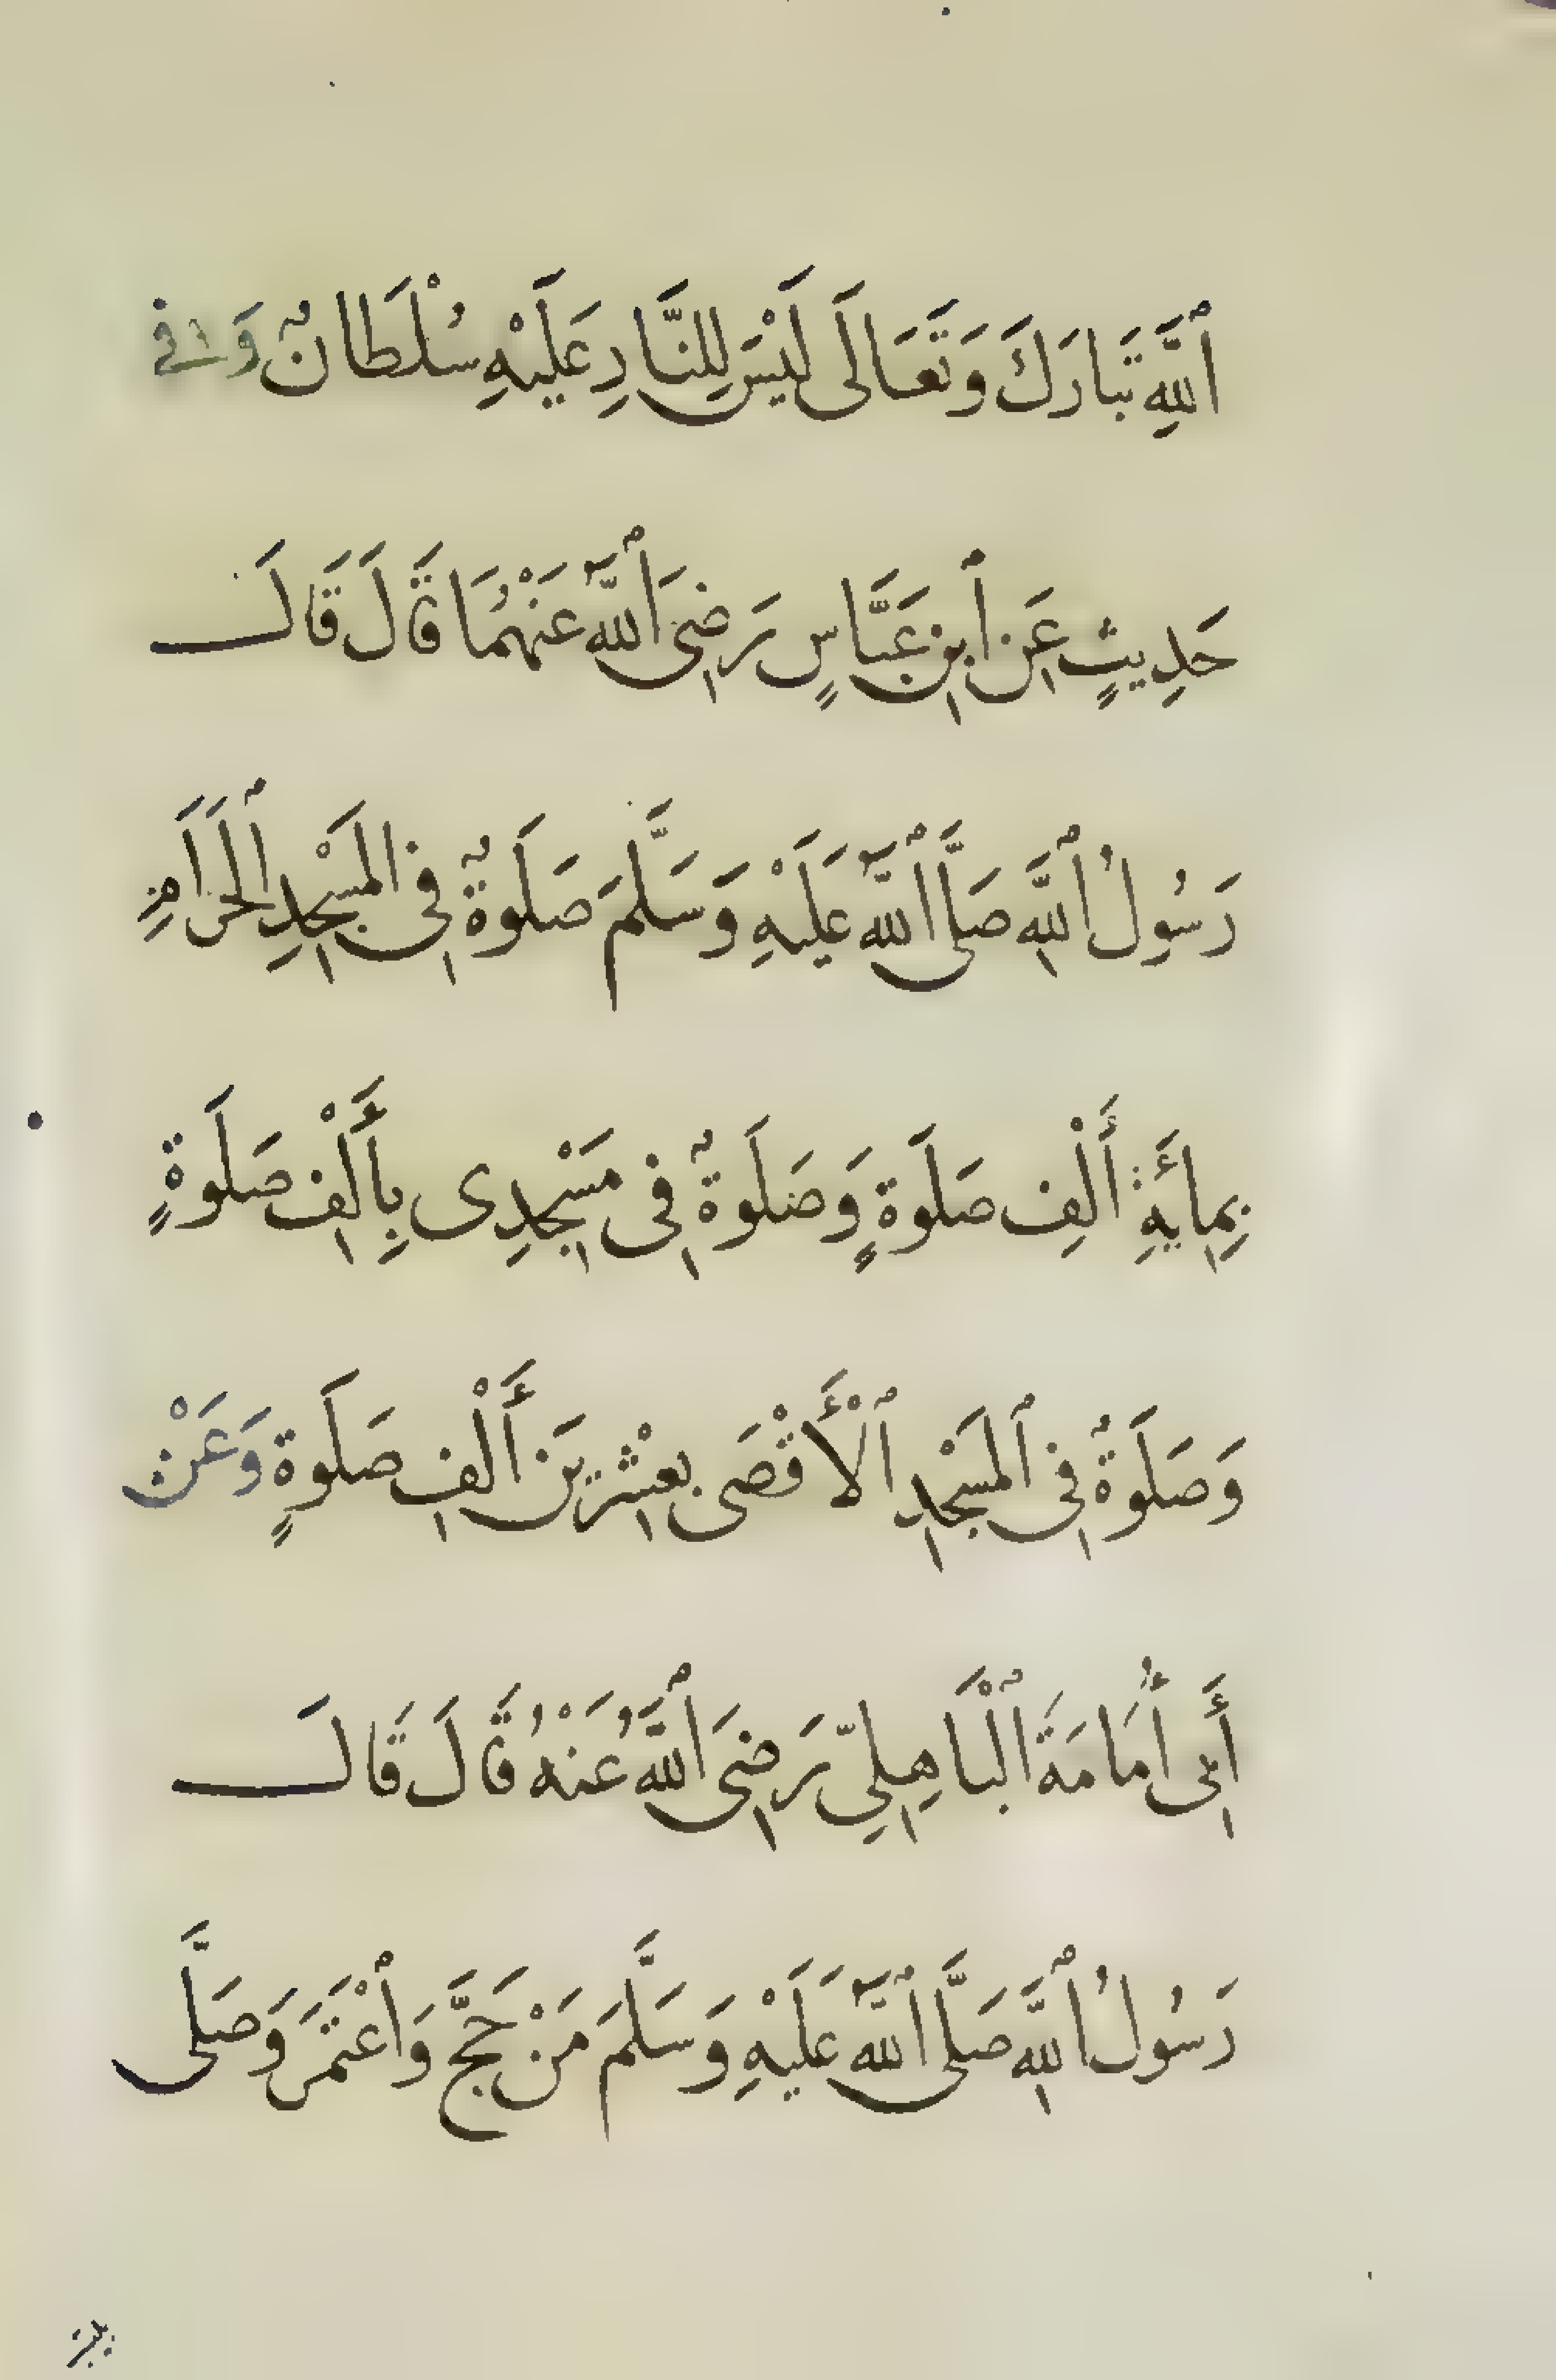 ٱللَّهِ تَبَارَكَ وَتَعَالَى لَيْسَ لِلنَّارِ عَلَيْهِ سُلْطَانٌ وَفِى
حَدِيثٍ عَنِ ٱبْنِ عَبَّاسٍ رَضِىَ ٱللَّهُ عَنْهُمَا قَالَ قَالَ
رَسُولُ ٱللَّهِ صَلَّى ٱللَّهُ عَلَيْهِ وَسَلَّمَ صَلَوةٌ فِى المَسْجِدِ ٱلحَرَامِ
بِمِائَةِ أَلْفِ صَلَوةٍ وَصَلَوةٌ فِى مَسْجِدِى بِأَلْفِ صَلَوةٍ
وَصَلَوةٌ فِى ٱلمَسْجِدِ ٱلْأَقْصَى بِعِشْرِينَ أَلْفِ صَلَوةٍ وَعَنْ
أَبِى أُمَامَةَ ٱلْبَاهِلِىِّ رَضِىَ ٱللَّهُ عَنْهُ قَالَ قَالَ
رَسُولُ ٱللَّهِ صَلَّى ٱللَّهُ عَلَيْهِ وَسَلَّمَ مَنْ حَجَّ وَٱعْتَمَرَ وَصَلَّى